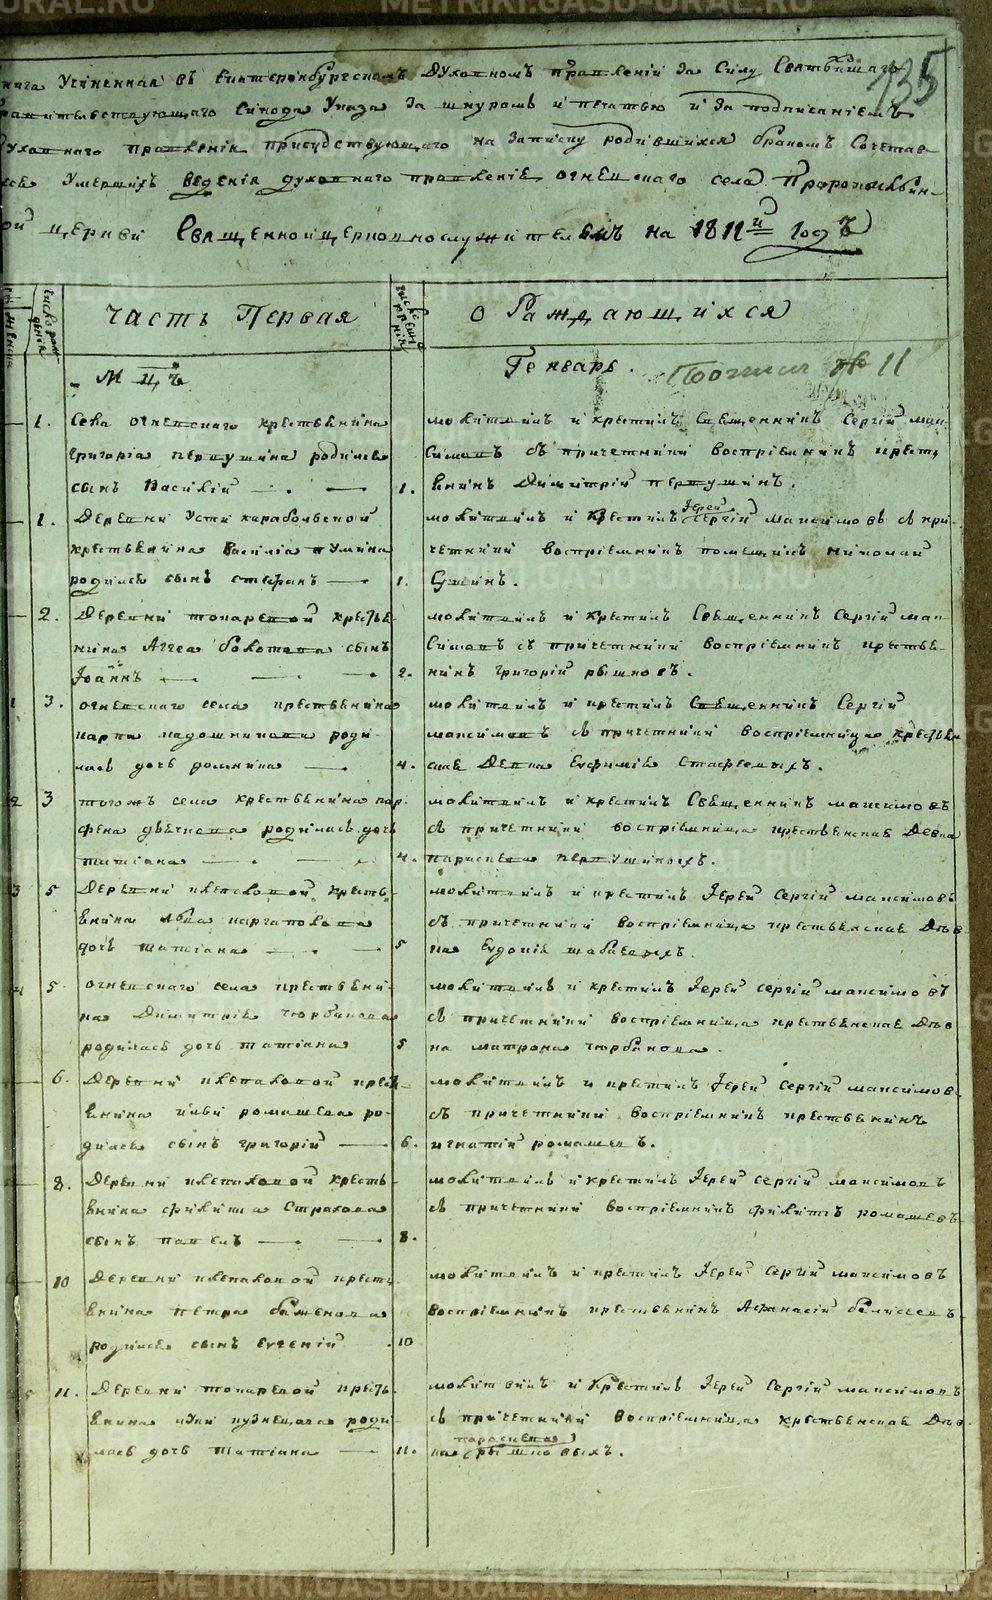 METRIKI.GASO-URAL.RU
135
книга Учиненная въ Екатеринбургскомъ Духовномъ правленіи За Силу Святѣйшаго
правительствующаго Синода Указа За шнуромъ и печатью и За подписаніемъ
Духовнаго правленія присудствующаго на Записку родившихся бракомъ Сочетав
Умершихъ веденія духовнаго правленія огневскаго села Пророкоильин-
ской церкви Священноицерковнослужителемъ на 1811й годъ
Часть Первая
о Раждающихся
Мцъ
Генварь.
№ 11
1. Села огневскаго крестьянина
Григорія первушина родился
сынъ Василій
1.
молитвилъ и крестилъ Священникъ Сергій мак
симовъ съ причетники воспріемникъ крест
янинъ Димитрій первушинъ.
1. Деревни Усть караболской
крестьянина Василія
родился сынъ стефанъ
1.
молитвилъ и крестилъ Іерей Сергій максимовъ съ при
четники воспріемникъ помещикъ николай
2. Деревни токаревой крестья
нина Аггея болотова сынъ
Іоаннъ
2.
молитвилъ и крестилъ Священникъ Сергій мак
симовъ съ причетники воспріемникъ крестья
нинъ григорій рышковъ.
3. огневскаго села крестьянина
карпа ладошникова роди
лась дочь домника
4.
молитвилъ и крестилъ Священникъ Сергій
максимовъ съ причетники воспріемница крестьян
ская Девка Евфимія
3 тогожъ села крестьянина пар
фена родилась дочь
татіана
4.
молитвилъ и крестилъ Священникъ максимовъ
съ причетники воспріемница крестьянская Девка
параскева первушиныхъ.
5 Деревни клепаловой кресть
янина льва каргаполова
дочь татіана
5
молитвилъ и крестилъ Іерей Сергій максимовъ
съ причетники воспріемница крестьянская Дѣв
ка Евдокія
5 огневскаго села крестьяни
на Димитрія чюрбакова
родилась дочь татіана
5
молитвилъ и крестилъ Іерей сергій максимовъ
съ причетники воспріемница крестьянская Дѣв
ка матрона чюрбакова.
6. Деревни клепаловой крест
янина ильи ромашева ро
дился сынъ григорій
6.
молитвилъ и крестилъ Іерей Сергій максимов
съ причетники воспріемникъ крестьянинъ
игнатій ромашевъ.
8. Деревни клепаловой кресть
янина филипа Страхова
сынъ павелъ
8.
молитвилъ и крестилъ Іерей сергій максимовъ
съ причетники воспріемникъ филипъ ромашевъ
10 Деревни клепаловой кресть
янина петра баженова
родился сынъ евгеній
10
молитвилъ и крестилъ Іерей Сергій максимовъ
воспріемникъ крестьянинъ Афанасій
11. Деревни токаревой кресть
янина луки кузнецова роди
лась дочь татіана
11.
молитвилъ и крестилъ Іерей Сергій максимовъ
съ причетники воспріемница крестьянская Дѣв
ка параскева рышковыхъ.
METRIKI.GASO-URAL.RU